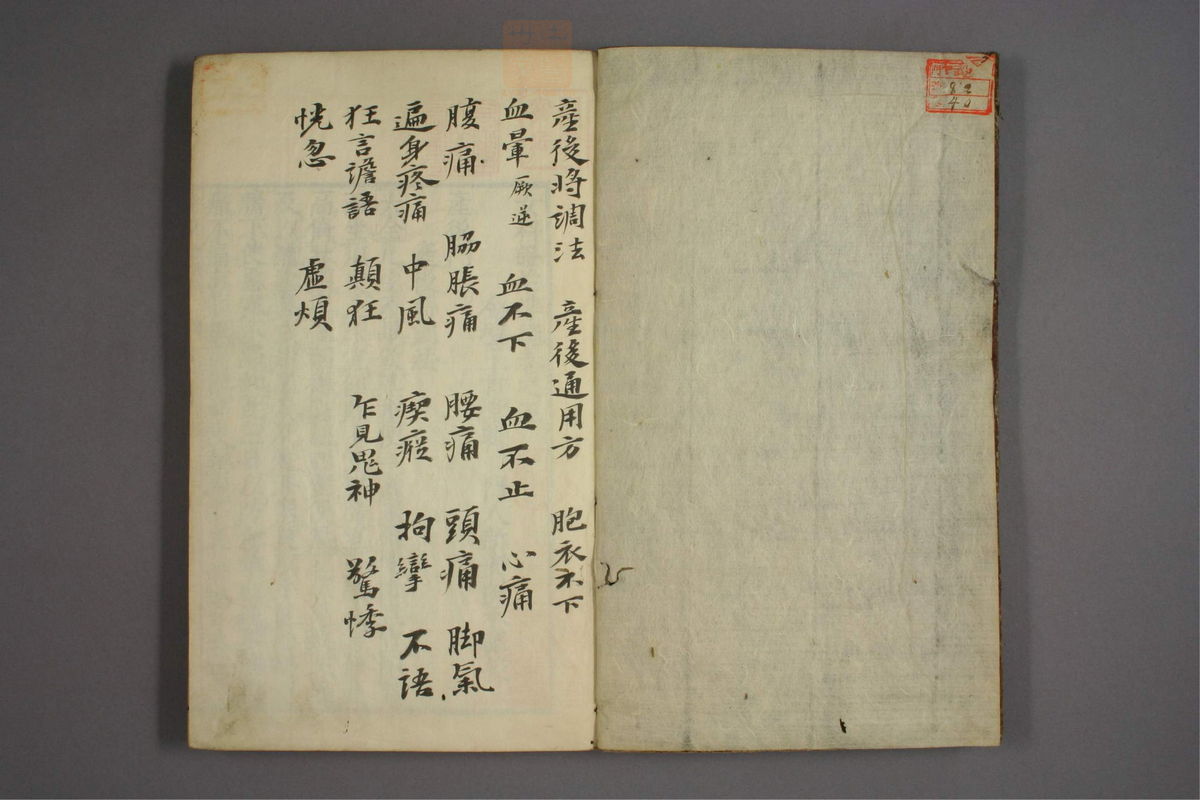 産後將調法 産後通用方 胞衣不下
血暈厥逆 血不下 血不止 心痛
腹痛 脇脹痛 腰痛 頭痛 脚氣
遍身疼痛 中風 瘈瘲 拘攣 不語
狂言譫語 顛狂 乍見鬼神 驚悸
恍忽 虚煩
82
40